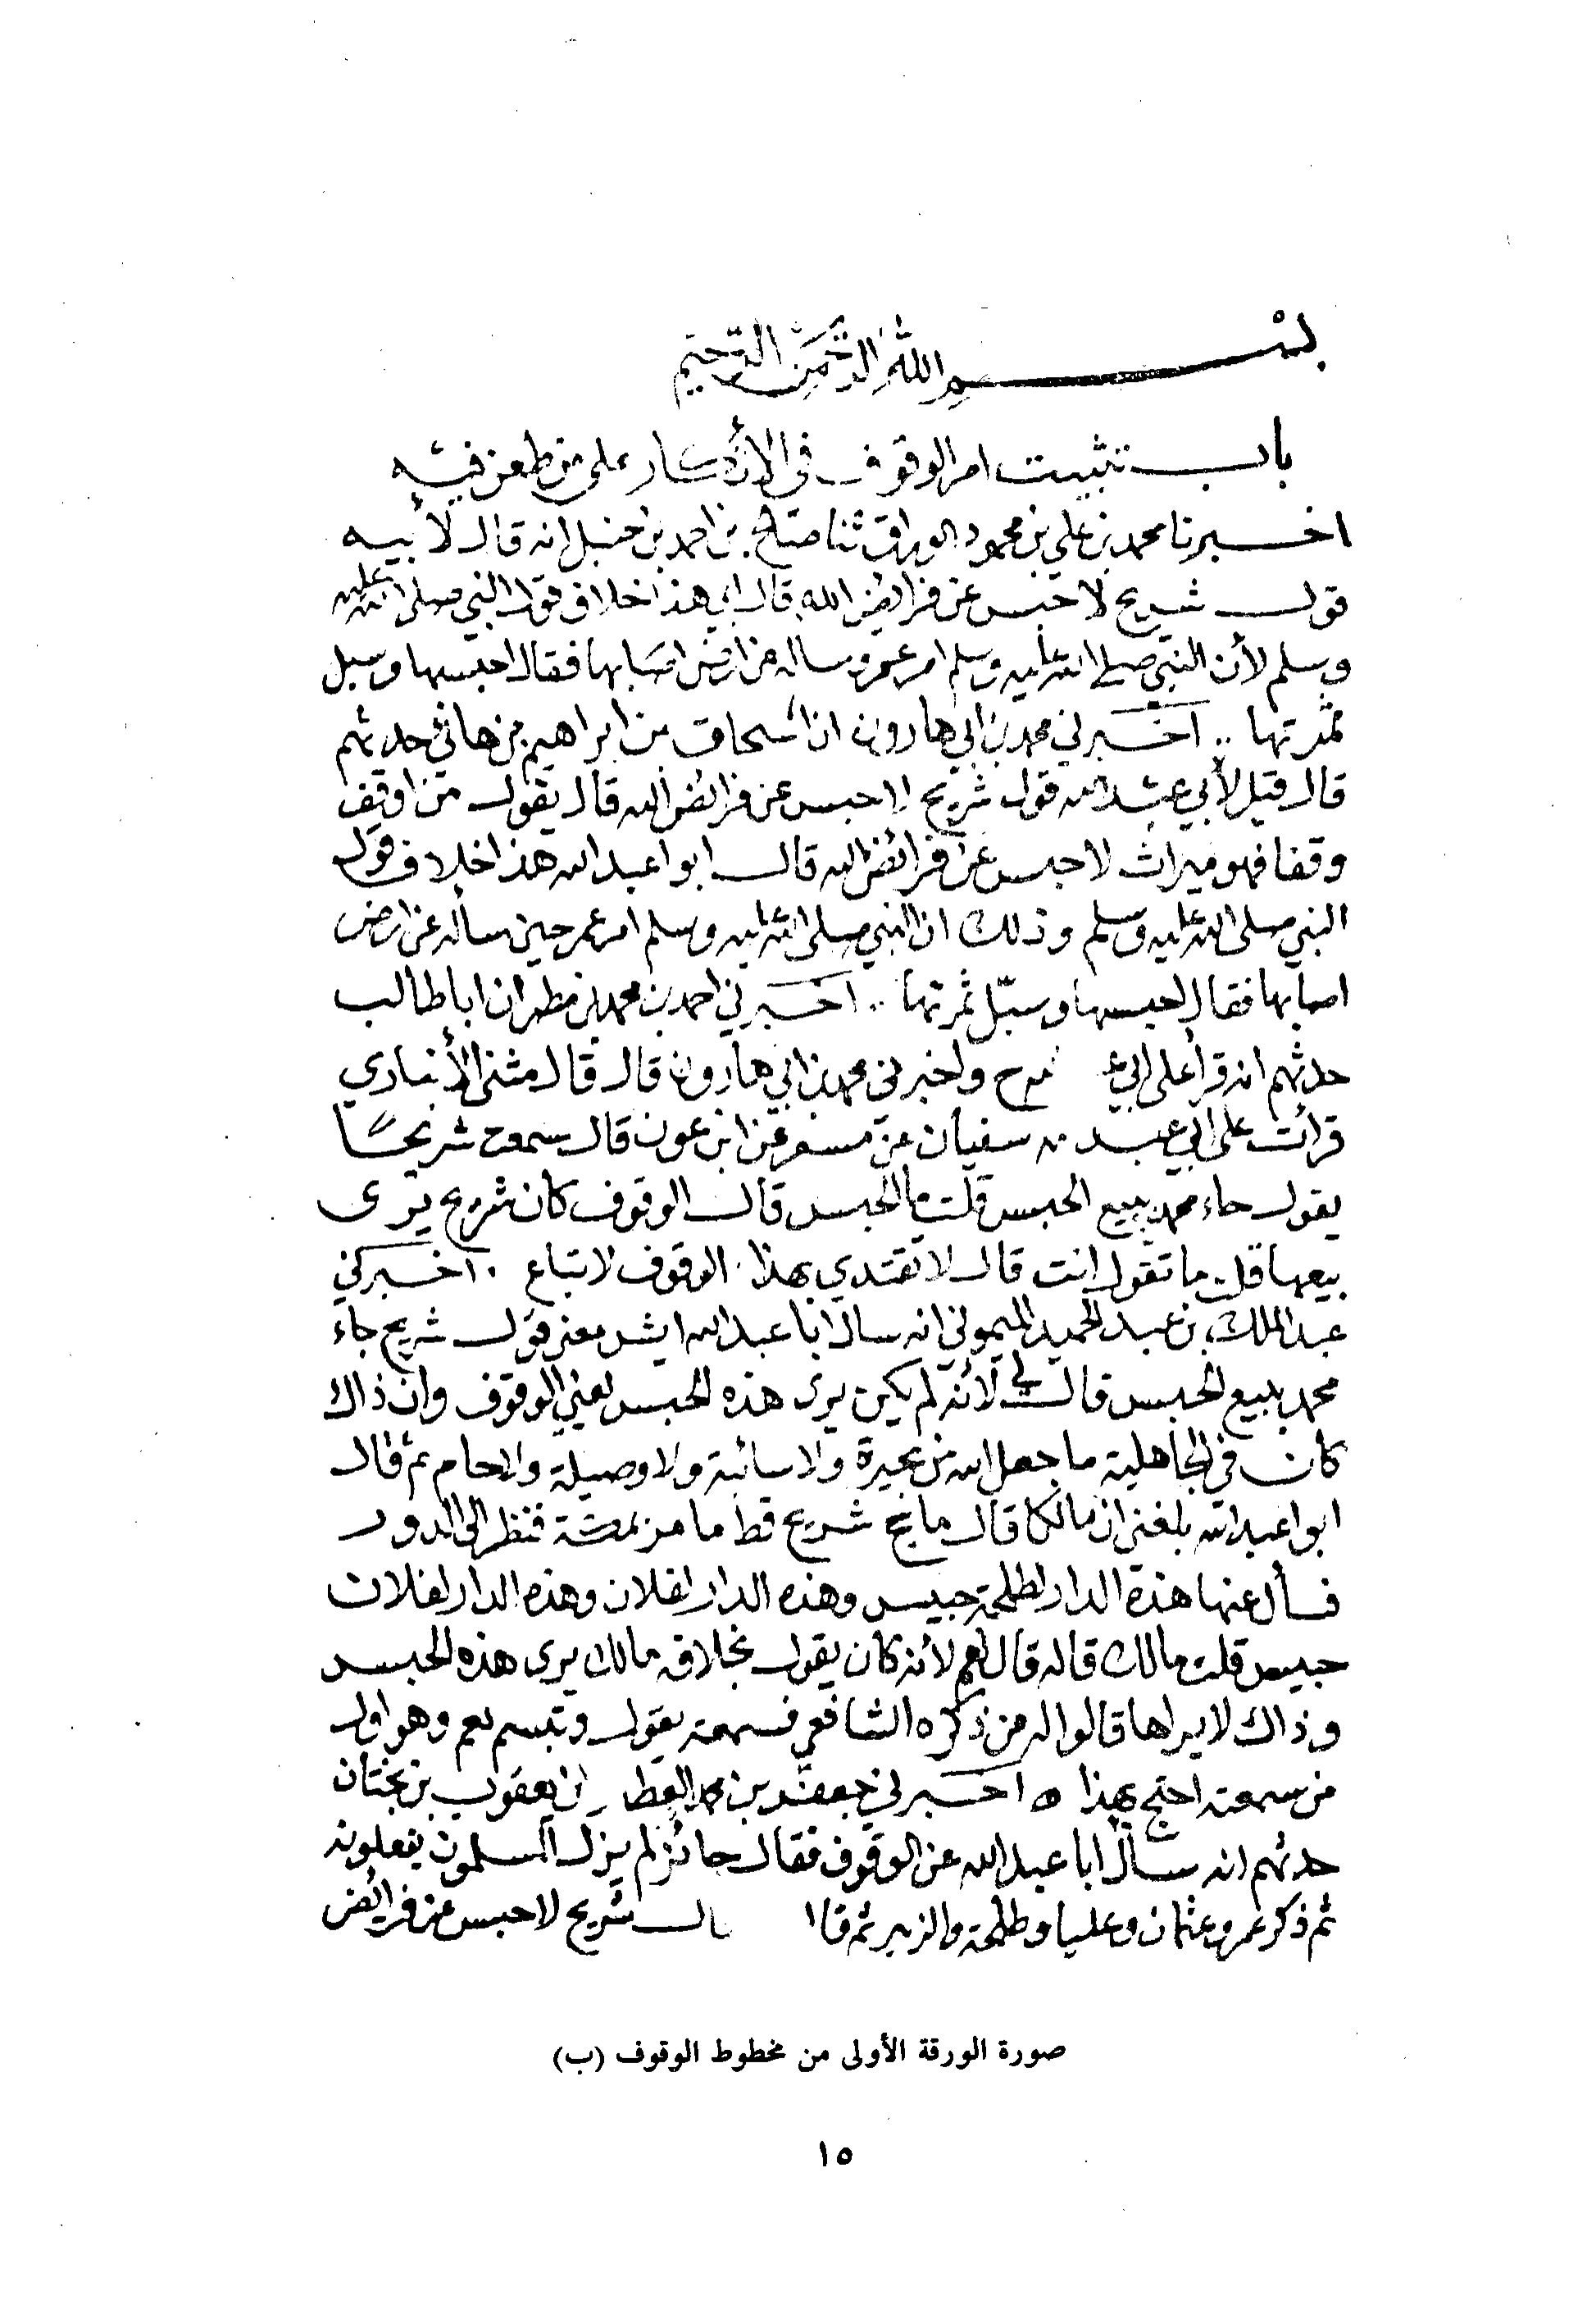 بسم الله الرحمن الرحيم
باب تثبيت امر الوقوف في الأنكار على من طعن فيه
اخبرنا محمد بن علي بن محمود الوراق ثنا صالح بن احمد بن حنبل انه قال لأبيه
قول شريح لا حبس عن فرايض الله قال ابي هذا خلاف قول النبي صلى الله عليه
وسلم لأن النبي صلى الله عليه وسلم امر عمر وساله عن ارض اصابها فقال احبسها وسبل
ثمرتها .. اخبرني محمد بن ابي هارون ان اسحاق بن ابراهيم بن هاني حدثهم
قال قيل لأبي عبد الله قول شريح لا حبس عن فرائض الله قال يقول من اوقف
وقفا فهو ميراث لا حبس عن فرائض الله قال ابوا عبد الله هذا خلاف قول
النبي صلى الله عليه وسلم وذلك ان النبي صلى الله عليه وسلم امر عمر حين سأله عن ارض
اصابها فقال احبسها وسبّل ثمرتها .. اخبرني احمد بن محمد بن مطر ان ابا طالب
حدثهم انه قرأ على ابي ع ح واخبرني محمد بن ابي هارون قال قال مثنى الأنباري
قرأت على ابي عبد سفيان عن مسعر عن ابن عون قال سمعت شريحًا
يقول جاء محمد ببيع الحبس قلت ما الحبس قال الوقوف كان شريح يرى
بيعها قلت ما تقول انت قال لا تقتدي بهذا الوقوف لا تباع . اخبرني
عبد الملك بن عبد الحميد الميموني انه سال ابا عبد الله ايش معنى قول شريح جاء
محمد ببيع الحبس قال لي لأنه لم يكن يرى هذه الحبس يعني الوقوف وان ذاك
كان في الجاهلية ما جعل الله من بحيرة ولا سائبة ولا وصيلة ولا حام ثم قال
ابوا عبد الله بلغني ان مالكا قال ما حج شريح قط ما مر بمكة فنظر الى الدور
فسأل عنها هذه الدار لطلحة حبيس وهذه الدار لفلان وهذه الدار لفلان
حبيس قلت مالك قاله قال نعم لأنه كان يقول بخلافه مالك يرى هذه الحبس
وذاك لا يراها قالوا له من ذكره الشافعي فسمعته يقول وتبسم نعم وهو اول
من سمعته احتج بهذا ه اخبرني جعفر بن محمد العطار ان يعقوب بن بختان
حدثهم انه سأل ابا عبد الله عن الوقوف فقال جائز لم يزل المسلمون يفعلونه
ثم ذكر عمر وعثمان وعليا وطلحة والزبير ثم قا شريح لا حبس عن فرائض
صورة الورقة الأولى من مخطوط الوقوف (ب)
١٥